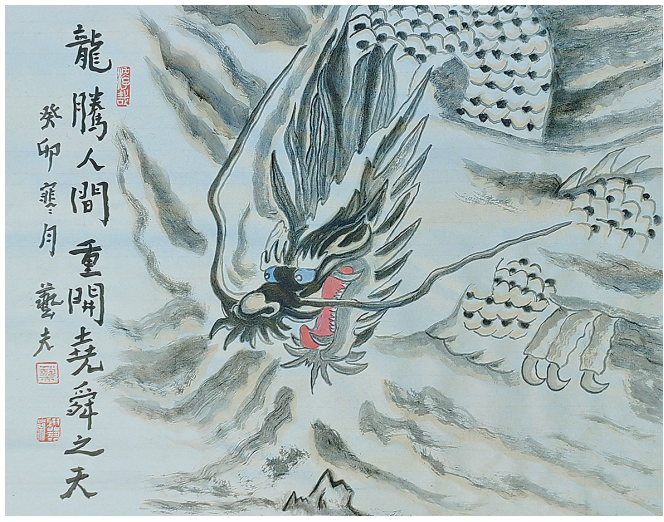 龍騰人間重開堯舜之天
癸卯寒月
藝夫